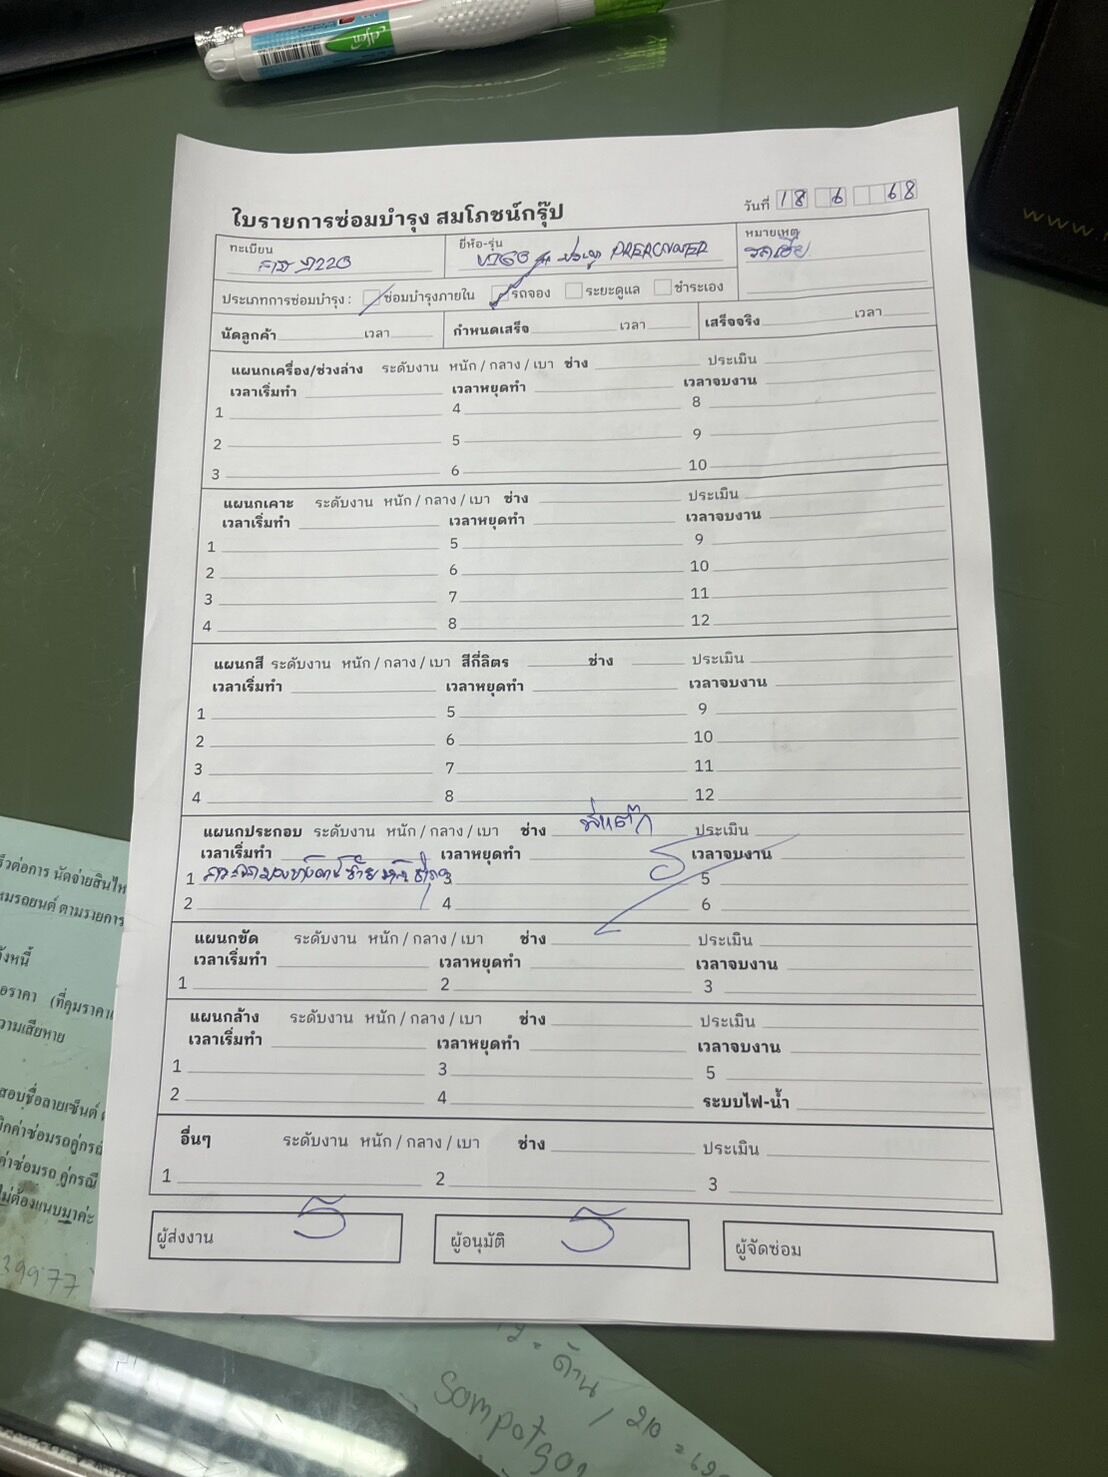 ใบรายการซ่อมบำรุง สมโภชน์กรุ๊ป
วันที่ 18 6 68
ทะเบียน
ยี่ห้อ-รุ่น VIGO PRERUNNER
หมายเหตุ
ประเภทการซ่อมบำรุง : ซ่อมบำรุงภายใน รถจอง ระยะดูแล ชำระเอง
นัดลูกค้า เวลา กำหนดเสร็จ เวลา เสร็จจริง เวลา
แผนกเครื่อง/ช่วงล่าง ระดับงาน หนัก / กลาง / เบา ช่าง ประเมิน
เวลาเริ่มทำ เวลาหยุดทำ เวลาจบงาน
1 4 8
2 5 9
3 6 10
แผนกเคาะ ระดับงาน หนัก / กลาง / เบา ช่าง ประเมิน
เวลาเริ่มทำ เวลาหยุดทำ เวลาจบงาน
1 5 9
2 6 10
3 7 11
4 8 12
แผนกสี ระดับงาน หนัก / กลาง / เบา สีกี่ลิตร ช่าง ประเมิน
เวลาเริ่มทำ เวลาหยุดทำ เวลาจบงาน
1 5 9
2 6 10
3 7 11
4 8 12
แผนกประกอบ ระดับงาน หนัก / กลาง / เบา ช่าง ประเมิน
เวลาเริ่มทำ เวลาหยุดทำ เวลาจบงาน
1 3 5
2 4 6
แผนกขัด ระดับงาน หนัก / กลาง / เบา ช่าง ประเมิน
เวลาเริ่มทำ เวลาหยุดทำ เวลาจบงาน
1 2 3
แผนกล้าง ระดับงาน หนัก / กลาง / เบา ช่าง ประเมิน
เวลาเริ่มทำ เวลาหยุดทำ เวลาจบงาน
1 3 5
2 4 ระบบไฟ-น้ำ
อื่นๆ ระดับงาน หนัก / กลาง / เบา ช่าง ประเมิน
1 2 3
ผู้ส่งงาน ผู้อนุมัติ ผู้จัดซ่อม
39977
ด้าน / 210